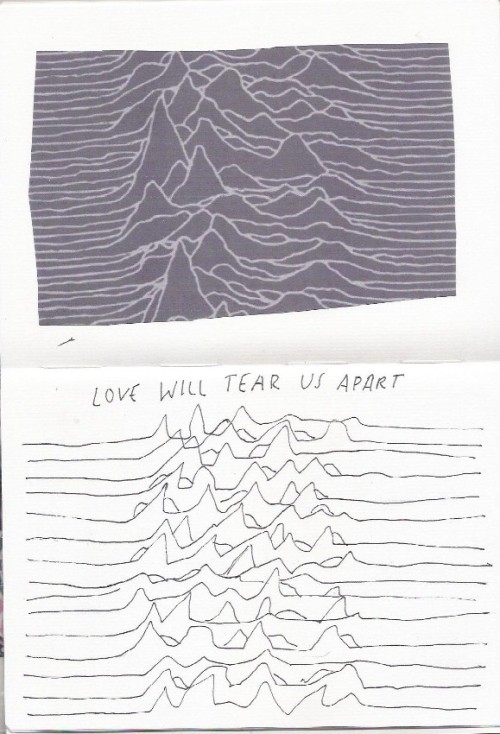 LOVE WILL TEAR US APART